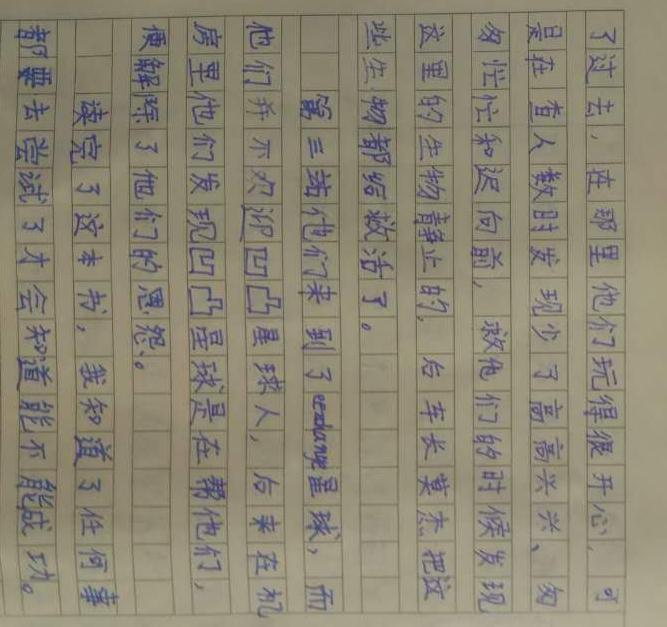 了过去，在那里他们玩得很开心，可
是在查人数时发现少了高高兴兴、匆
匆忙忙和迟向前，救他们的时候发现
这里的生物静止的，后车长莫杰把这
些生物都给救活了。
第三站他们来到了exchange星球，而
他们并不欢迎凹凸星球人，后来在机
房里他们发现凹凸星球是在帮他们，
便解除了他们的恩怨。
读完了这本书，我知道了任何事
都要去尝试了才会知道能不能成功。